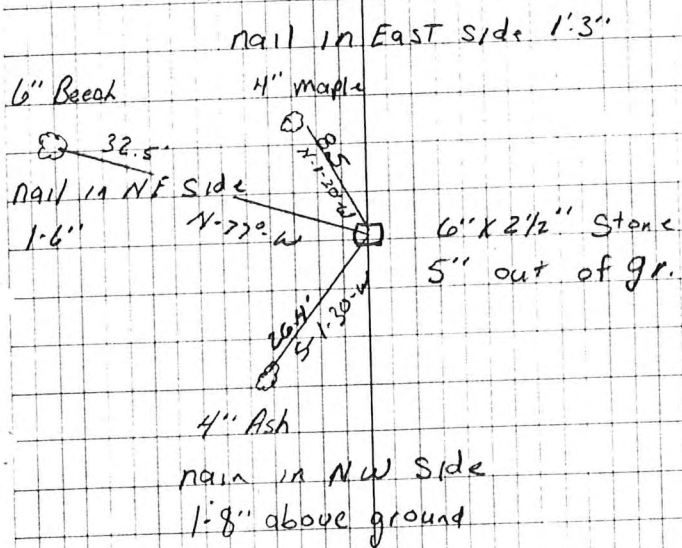 nail in East side 1'-3"
6" Beech
4" maple
32.5'
8.5
N-1-20-W
nail in NE side
1-6"
N-77°-W
6" X 2½" Stone
5" out of gr.
26.4'
S 1-30-W
4" Ash
nain in NW Side
1-8" above ground